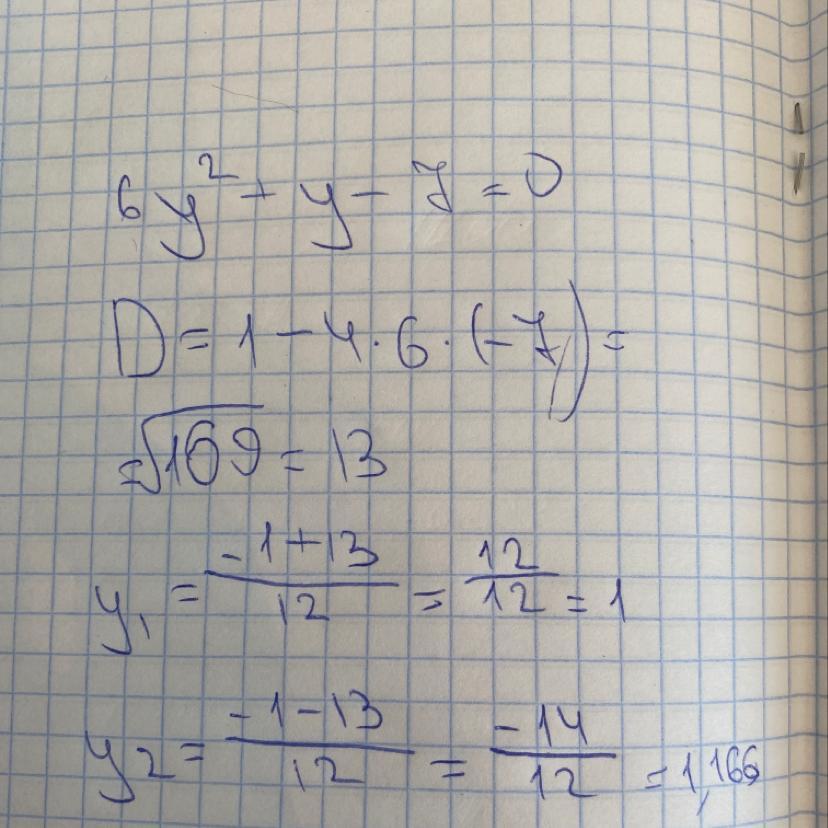 6y² + y - 7 = 0
D = 1 - 4 · 6 · (-7) =
= √169 = 13
y₁ = (-1+13)/12 = 12/12 = 1
y₂ = (-1-13)/12 = -14/12 = 1,166